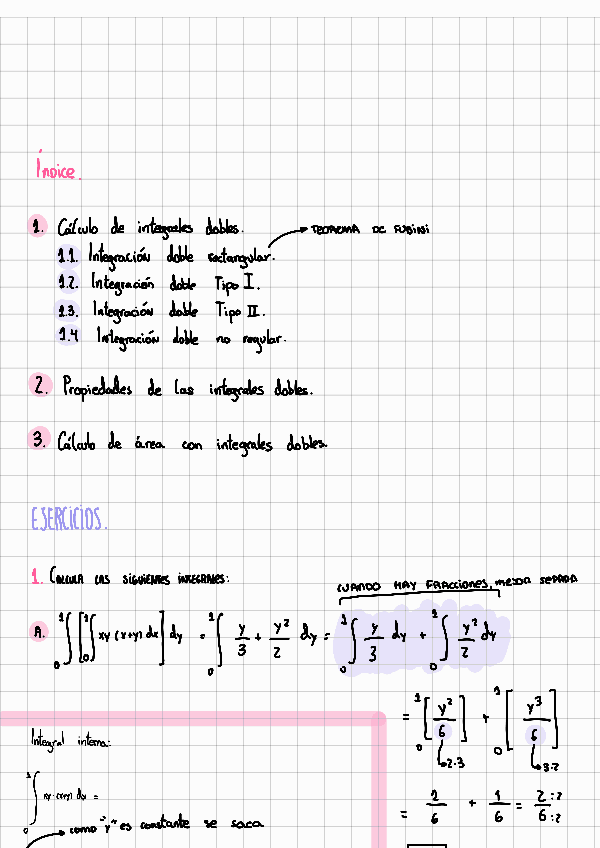 Índice.
1. Cálculo de integrales dobles.
1.1. Integración doble rectangular. → TEOREMA DE FUBINI
1.2. Integración doble Tipo I.
1.3. Integración doble Tipo II.
1.4 Integración doble no regular.
2. Propiedades de las integrales dobles.
3. Cálculo de área con integrales dobles.
EJERCICIOS.
1. CALCULA LAS SIGUIENTES INTEGRALES:
CUANDO HAY FRACCIONES, MEJOR SEPARA
A. ∫₀¹ [∫₀¹ xy (x+y) dx] dy = ∫₀¹ y/3 + y²/2 dy = ∫₀¹ y/3 dy + ∫₀¹ y²/2 dy
= ₀¹[y²/6] + ₀¹[y³/6]
↳2·3 ↳3·2
= 2/6 + 1/6 = 2:2/6:2
Integral interna:
∫₀¹ xy·(x+y) dx =
como "y" es constante se saca